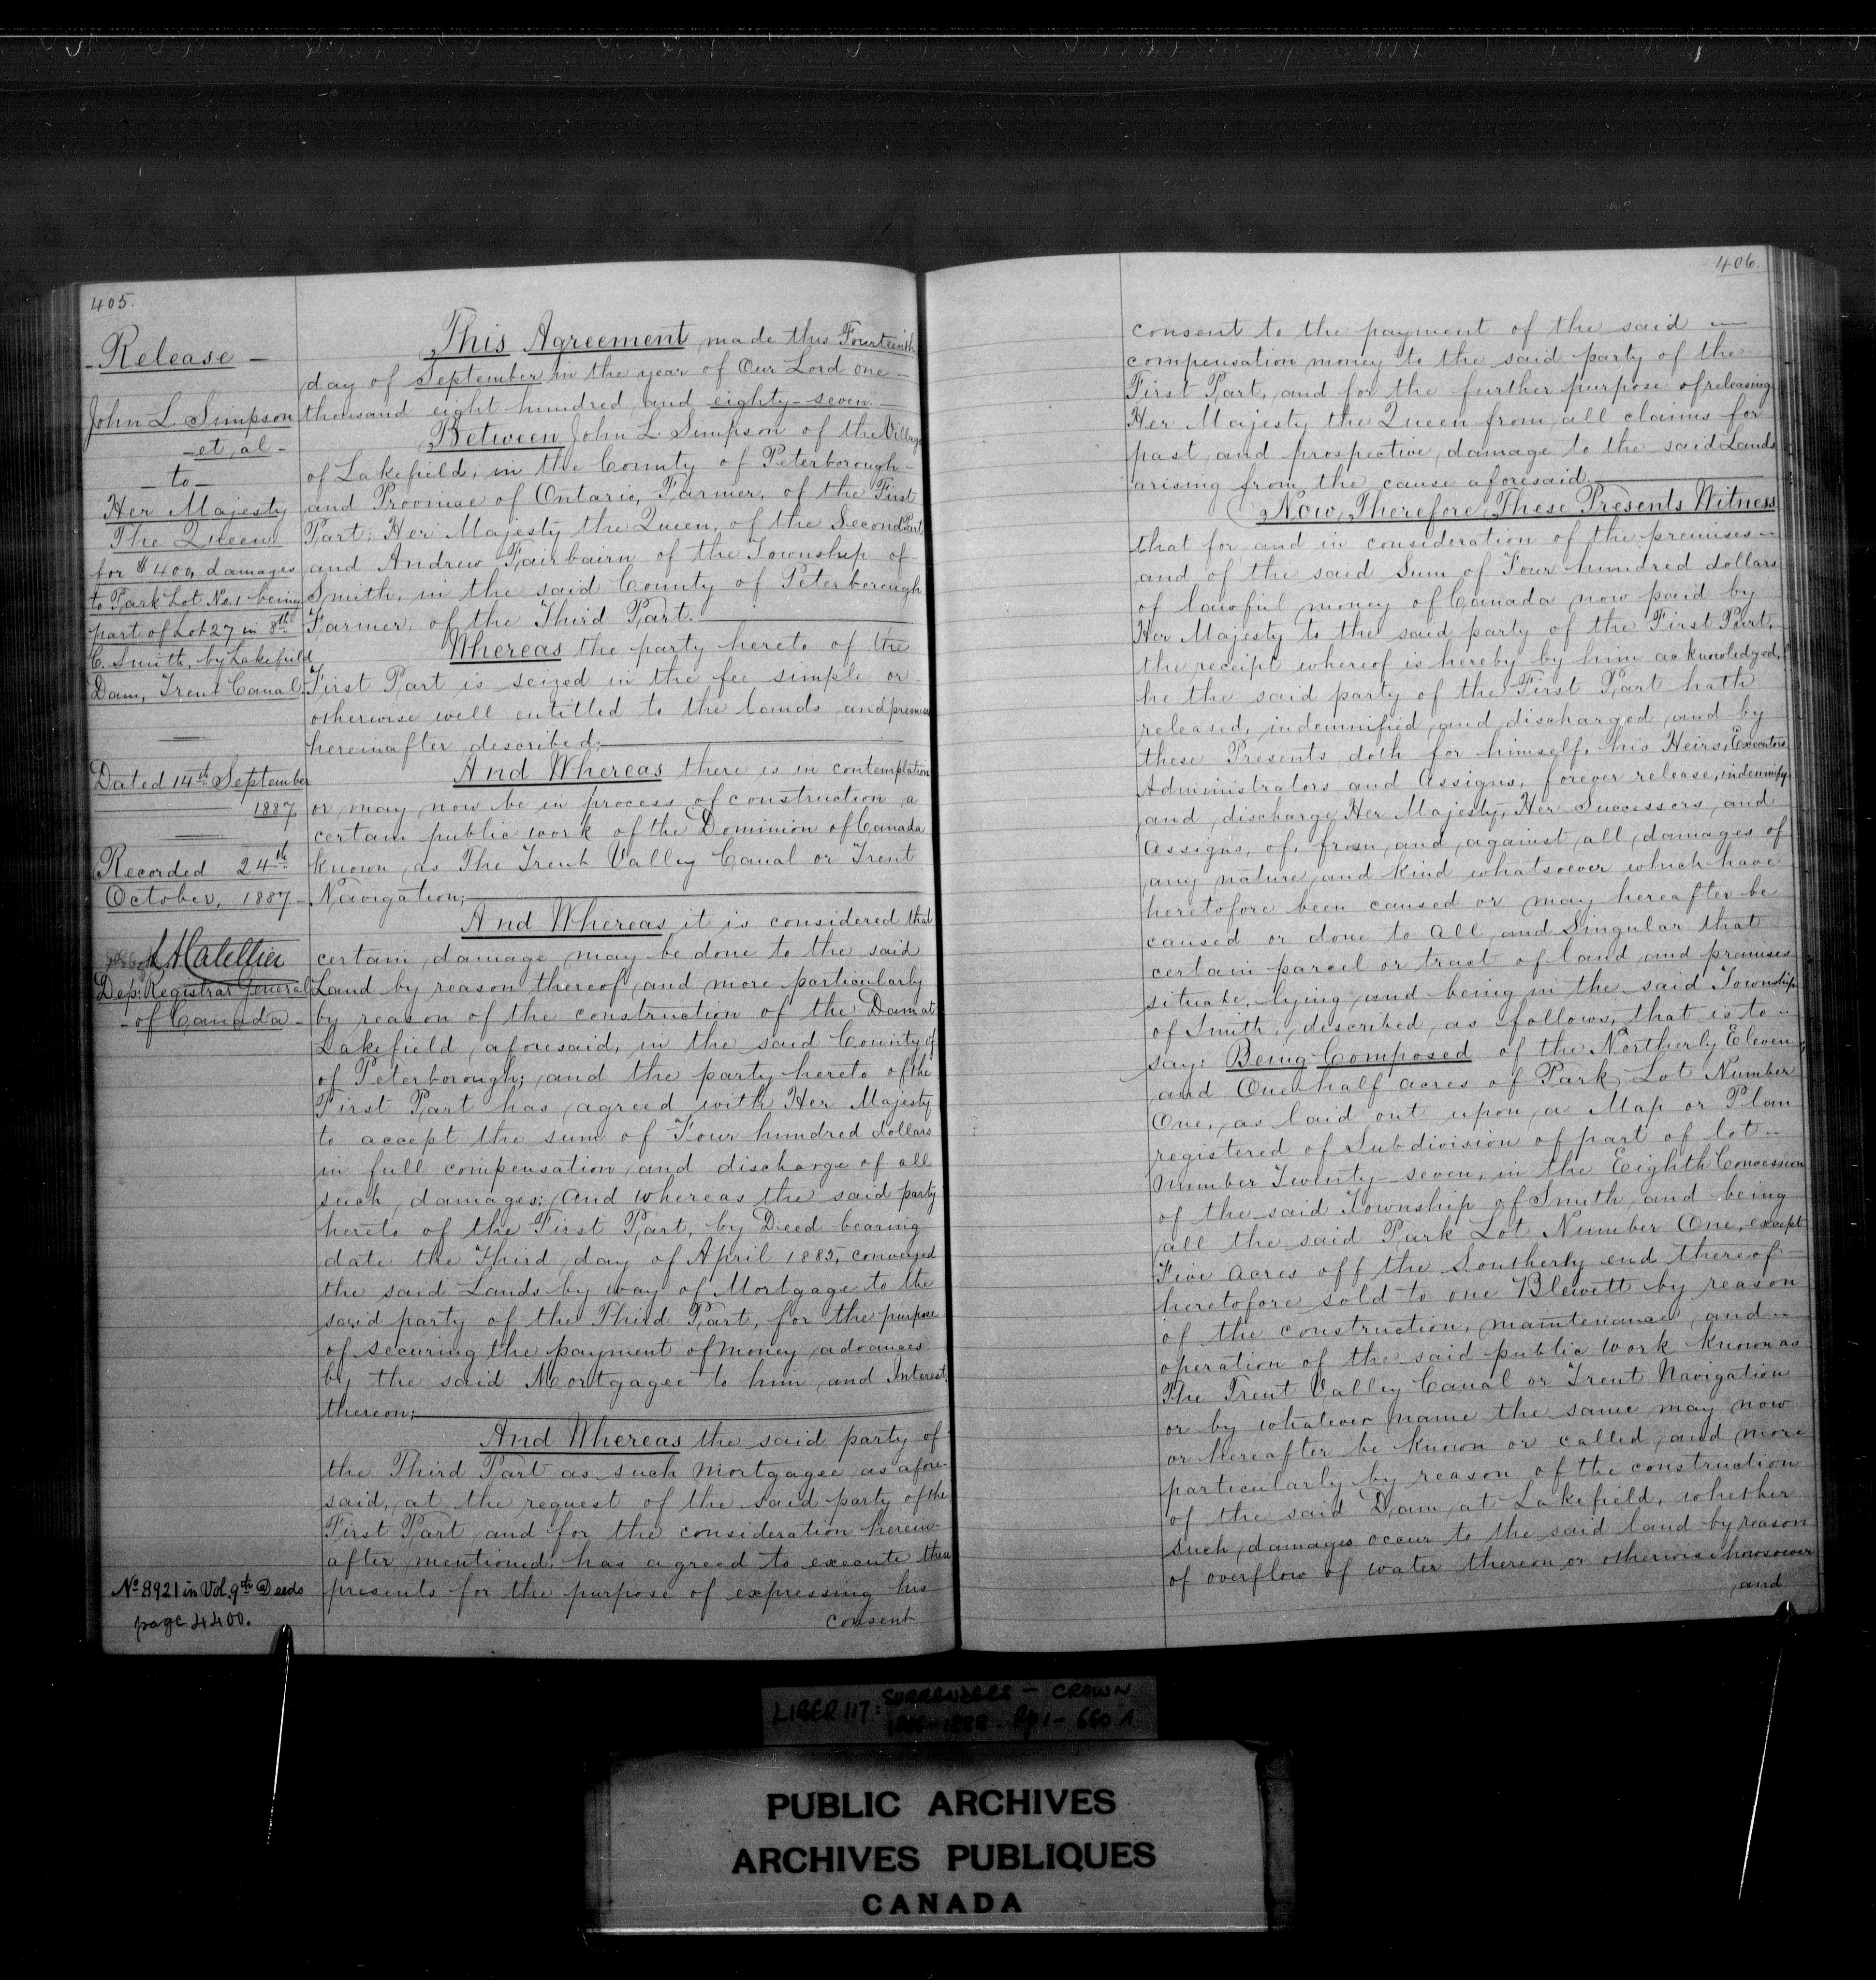 405.
Release
John L. Simpson
et al
to
Her Majesty
The Queen
for $400, damages
to Park Lot No. 1 being
part of Lot 27 in 8th
C. Smith, by Lakefield
Dam, Trent Canal.
Dated 14th September
1887
Recorded 24th
October, 1887
Dep: Registrar General
of Canada
No 8921 in Vol. 9th @ Deeds
page 4400.
This Agreement made this Fourteenth
day of September in the year of Our Lord one
thousand eight hundred and eighty-seven.
Between John L Simpson of the Village
of Lakefield, in the County of Peterborough
and Province of Ontario, Farmer, of the First
Part; Her Majesty the Queen, of the Second Part
and Andrew Fairbairn of the Township of
Smith, in the said County of Peterborough
Farmer, of the Third Part.
Whereas the party hereto of the
First Part is seized in the fee simple or
otherwise well entitled to the lands and premises
hereinafter described;
And Whereas there is in contemplation
or may now be in process of construction a
certain public work of the Dominion of Canada
known as The Trent Valley Canal or Trent
Navigation;
And Whereas it is considered that
certain damage may be done to the said
Land by reason thereof and more particularly
by reason of the construction of the Dam at
Lakefield aforesaid, in the said County of
of Peterborough; and the party hereto of the
First Part has agreed with Her Majesty
to accept the sum of Four hundred dollars
in full compensation and discharge of all
such damages; And whereas the said party
hereto of the First Part, by Deed bearing
date the Third day of April 1885, conveyed
the said Lands by way of Mortgage to the
said party of the Third Part, for the purpose
of securing the payment of money advances
by the said Mortgagee to him and Interest
thereon;
And Whereas the said party of
the Third Part as such Mortgagee as afore-
said, at the request of the said party of the
First Part and for the consideration herein-
after mentioned, has agreed to execute these
presents for the purpose of expressing his
consent
406.
consent to the payment of the said
compensation money to the said party of the
First Part, and for the further purpose of releasing
Her Majesty the Queen from all claims for
past and prospective damage to the said Lands
arising from the cause aforesaid.
Now Therefore These Presents Witness
that for and in consideration of the premises
and of the said Sum of Four hundred dollars
of lawful money of Canada now paid by
Her Majesty to the said party of the First Part,
the receipt whereof is hereby by him acknowledged,
he the said party of the First Part hath
released, indemnified and discharged and by
these Presents doth for himself, his Heirs, Executors
Administrators and Assigns, forever release, indemnify
and discharge Her Majesty, Her Successors and
Assigns, of, from and against all damages of
any nature and kind whatsoever which have
heretofore been caused or may hereafter be
caused or done to All and Singular that
certain parcel or tract of land and premises
situate, lying and being in the said Township
of Smith, described as follows, that is to
say: Being Composed of the Northerly Eleven
and One half acres of Park Lot Number
One, as laid out upon a Map or Plan
registered of Subdivision of part of lot
number Twenty-seven, in the Eighth Concession
of the said Township of Smith and being
all the said Park Lot Number One, except
Five acres off the Southerly end thereof
heretofore sold to one Blewett by reason
of the construction, maintenance and
operation of the said public work known as
The Trent Valley Canal or Trent Navigation
or by whatever name the same may now
or hereafter be known or called, and more
particularly by reason of the construction
of the said Dam at Lakefield, whether
such damages occur to the said land by reason
of overflow of water thereon or otherwise howsoever
and
LIBER 117: SURRENDERS - CROWN
1888. Pp 1 - 660 A
PUBLIC ARCHIVES
ARCHIVES PUBLIQUES
CANADA